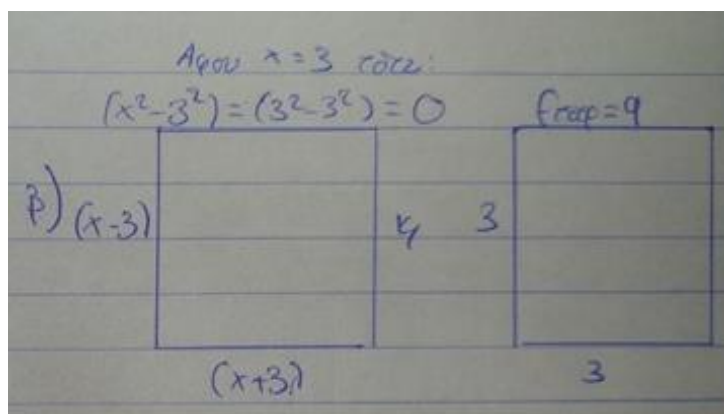 Αφου x=3 τότε:
(x²-3²)=(3²-3²)=0 Eτετρ=9
β) (x-3) κ, 3
(x+3) 3